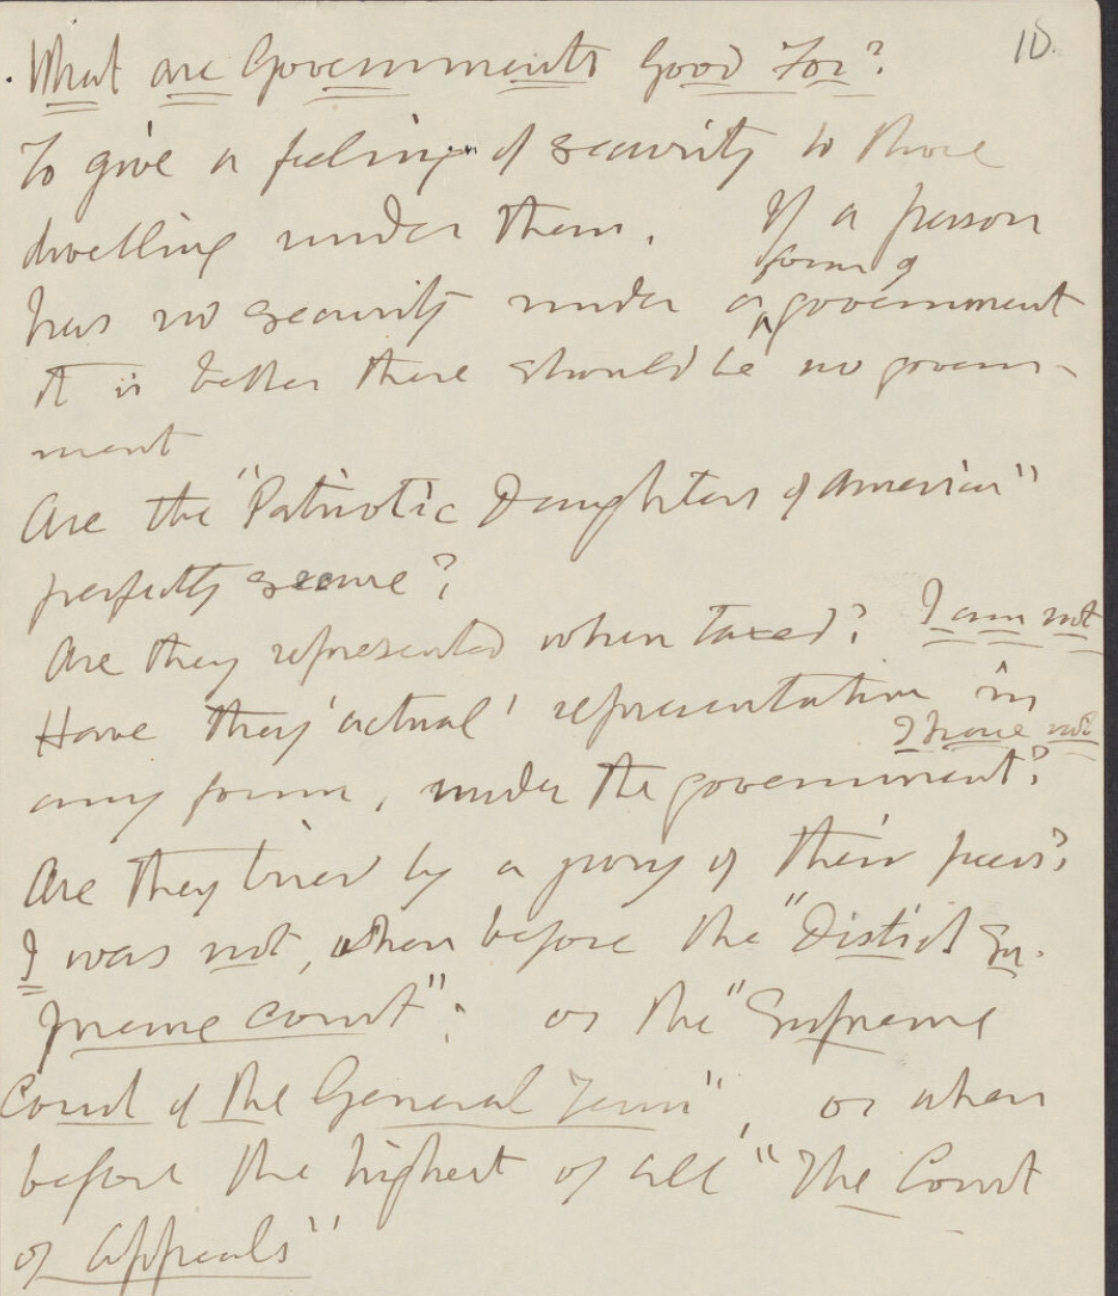 10.
What are Governments Good For?
To give a feeling of security to those
dwelling under them. If a person
form of
has no security under a government
it is better there should be no govern-
ment
Are the "Patriotic Daughters of America"
perfectly secure?
Are they represented when taxed? I am not
Have they 'actual' representation in
I have not
any form, under the government?
Are they tried by a jury of their peers?
I was not, when before the "District Su-
preme Court"; or the "Supreme
Court of the General Term", or when
before the highest of all "The Court
of Appeals"